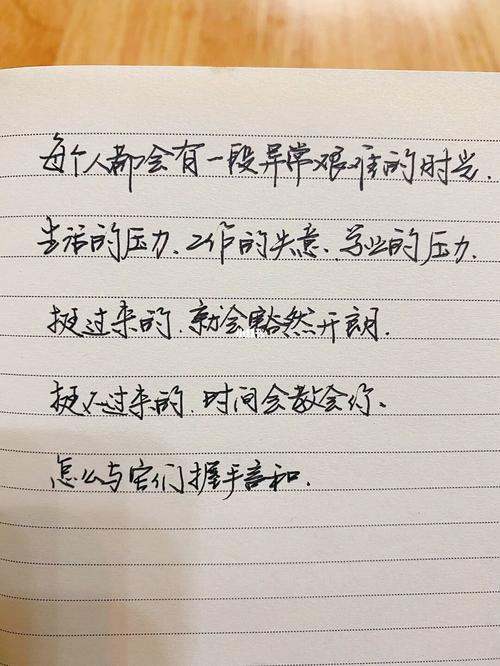 每个人都会有一段异常艰难的时光.
生活的压力、工作的失意、学业的压力.
挺过来的、就会豁然开朗.
挺不过来的、时间会教会你、
怎么与它们握手言和.